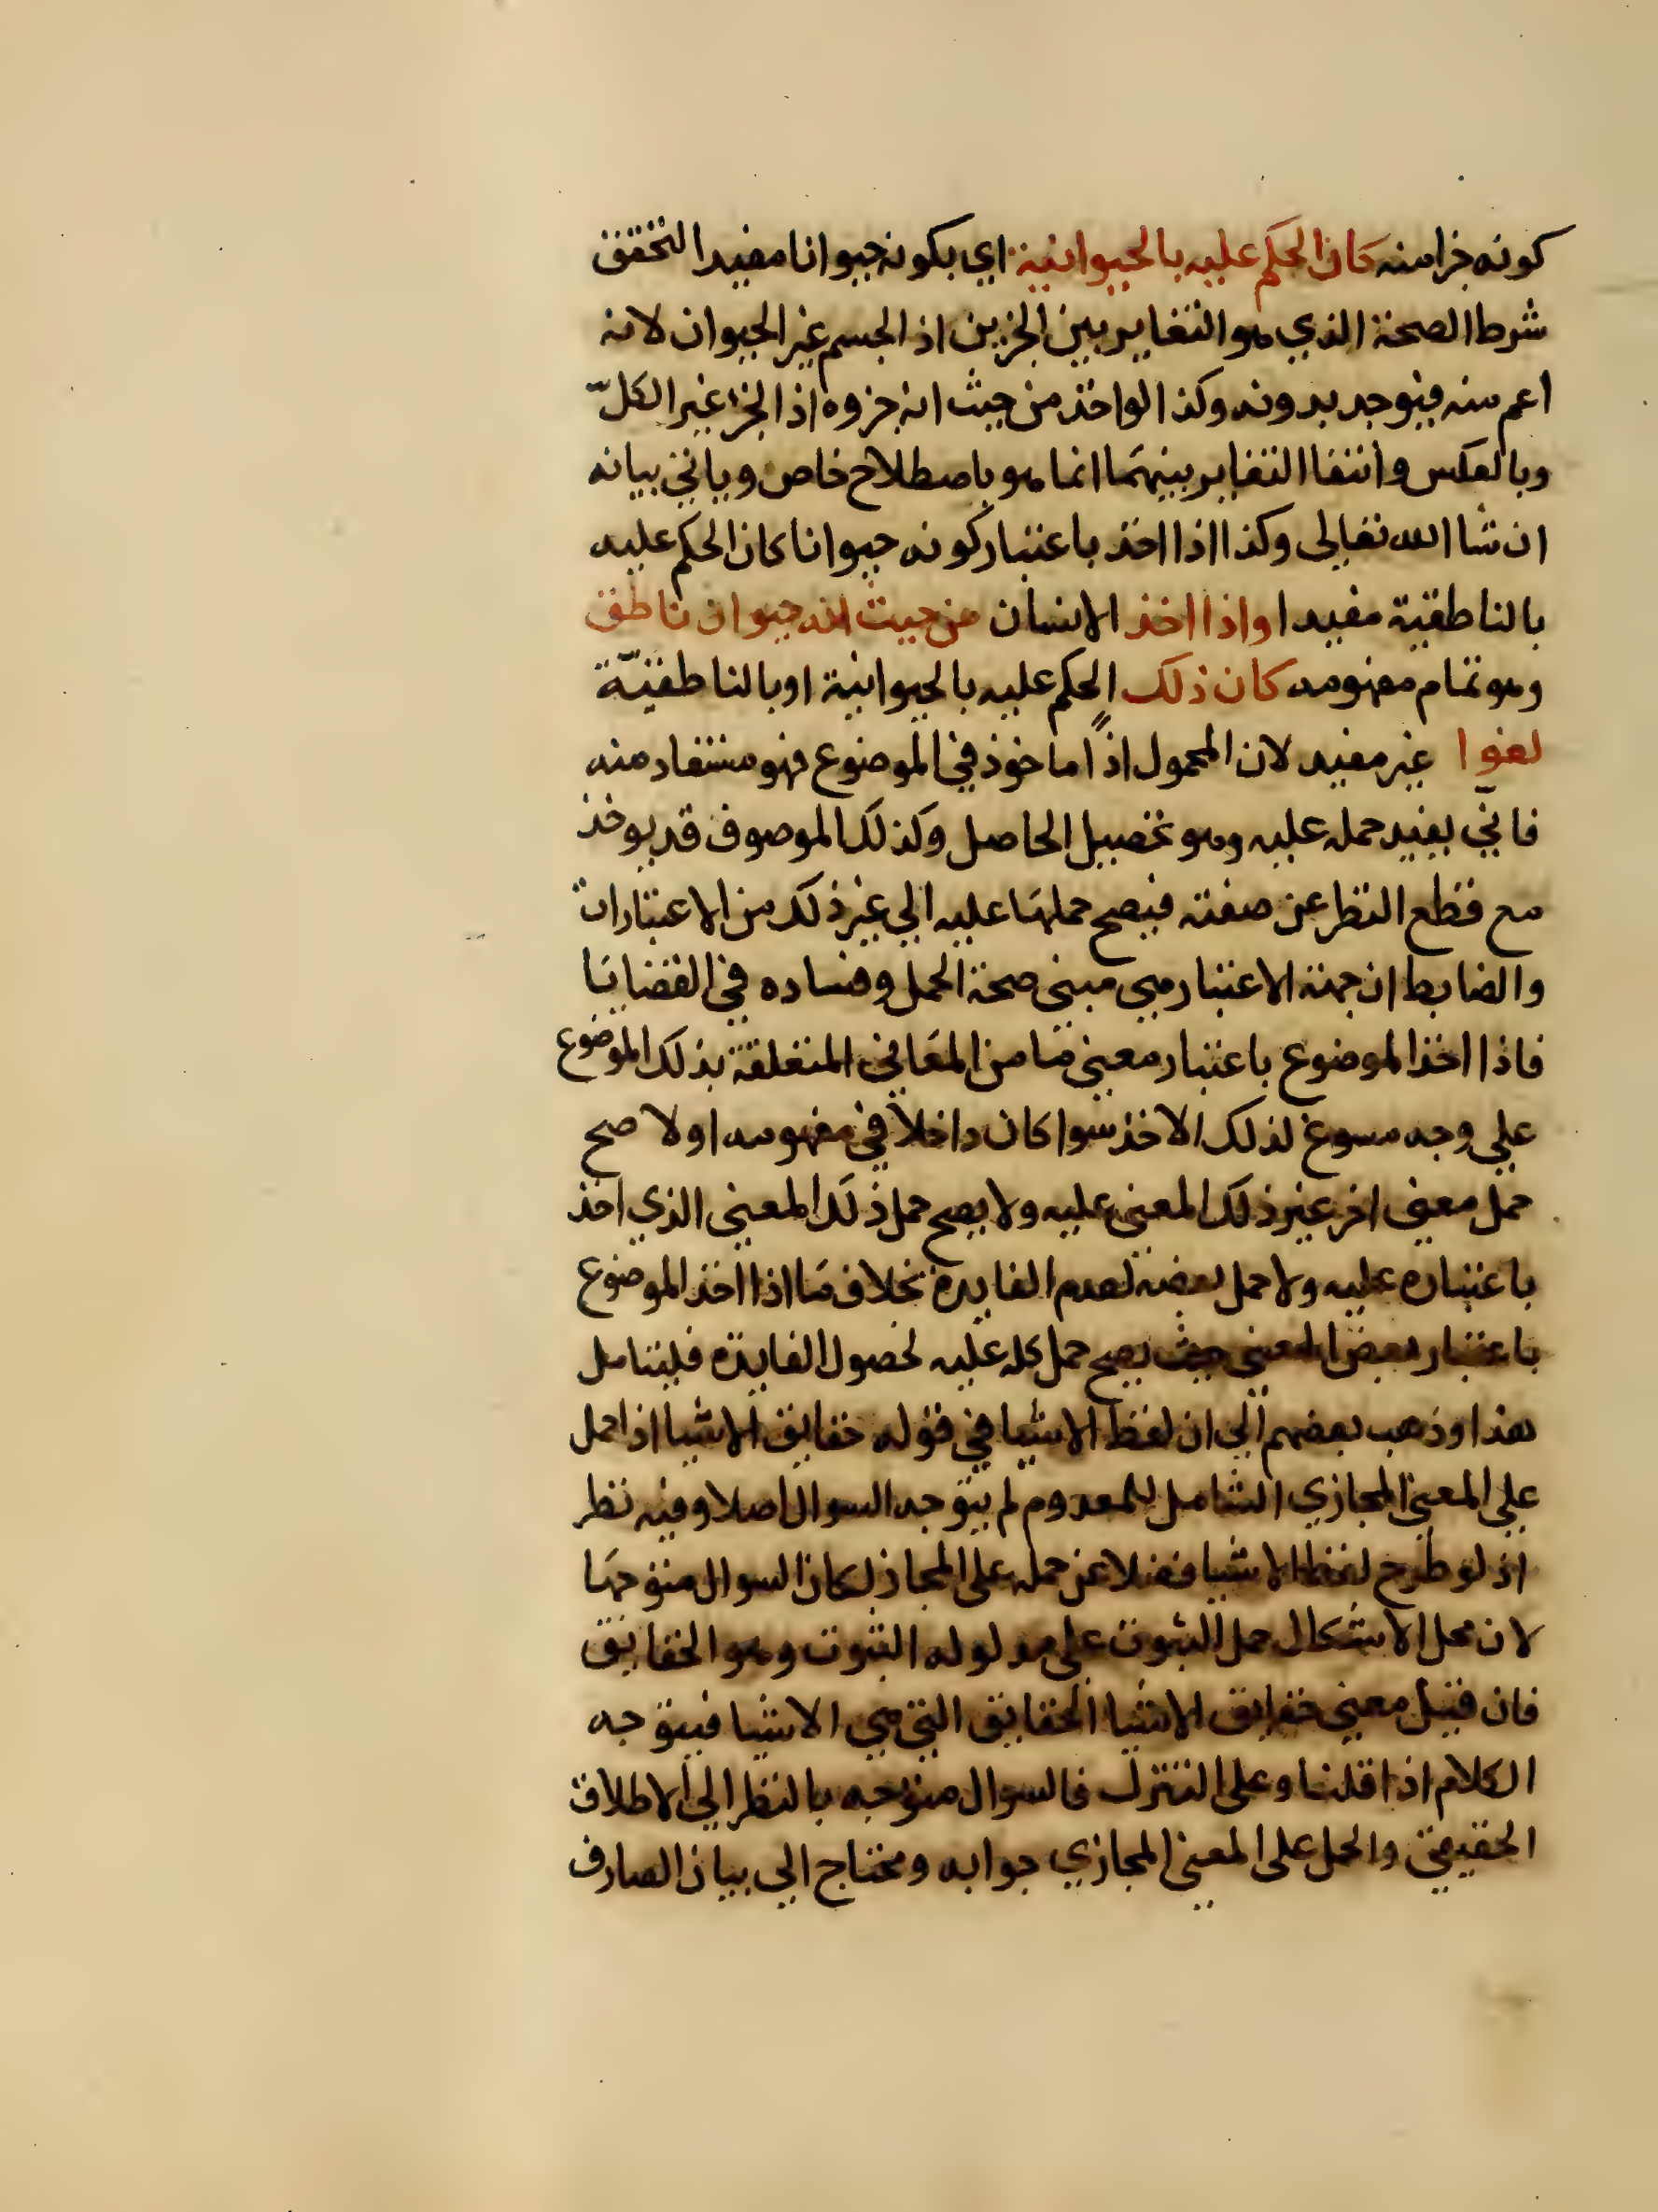 كونه جزا منه كان الحكم عليه بالحيوانية اي بكونه حيوانا مفيد التحقق
شرط الصحة الذي هو التغاير بين الجزين اذ الجسم غير الحيوان لانه
اعم منه فيوجد بدونه وكذا لو اخذ من حيث انه جزوه اذ الجزء غير الكلّ
وبالعكس وانتفا التغاير بينهما انما هو باصطلاح خاص وياتي بيانه
ان شا الله تعالى وكذا اذا اخذ باعتبار كونه حيوانا كان الحكم عليه
بالناطقية مفيدا واذا اخذ الانسان من حيث انه حيوان ناطق
وهو تمام مفهومه كان ذلك الحكم عليه بالحيوانية او بالناطقيّة
لغوا غير مفيد لان المحمول اذًا ماخوذ في الموضوع فهو مستفاد منه
فانّي يفيد حمله عليه وهو تحصيل الحاصل وكذلك الموصوف قد يوخذ
مع قطع النظر عن صفته فيصح حملها عليه الي غير ذلك من الاعتبارات
والضابط ان جهة الاعتبار هي مبني صحة الحمل وفساده في القضايا
فاذا اخذ الموضوع باعتبار معني ما من المعاني المتعلقة بذلك الموضوع
علي وجه مسوغ لذلك الاخذ سوا كان داخلا في مفهومه اولا صح
حمل معني اخر غير ذلك المعني عليه ولا يصح حمل ذلك المعني الذي اخذ
باعتباره عليه ولا حمل بعضه لعدم الفايدة بخلاف ما اذا اخذ الموضوع
باعتبار بعض المعني حيث يصح حمل كله عليه لحصول الفايدة فليتامل
هذا وذهب بعضهم الي ان لفظ الاشيا في قوله حقايق الاشيا اذا حمل
علي المعني المجازي الشامل للمعدوم لم يتوجه السوال اصلا وفيه نظر
اذ لو طرح لفظ الاشيا فضلا عن حمله على المجاز لكان السوال متوجها
لان محل الاشكال حمل الثبوت علي مدلوله الثبوت وهو الحقايق
فان قيل معني حقايق الاشيا الحقايق التي هي الاشيا فيتوجه
الكلام اذا قلنا وعلى التنزل فالسوال متوجه بالنظر الي الاطلاق
الحقيقي والحمل على المعني المجازي جوابه ومحتاج الي بيان الصارف